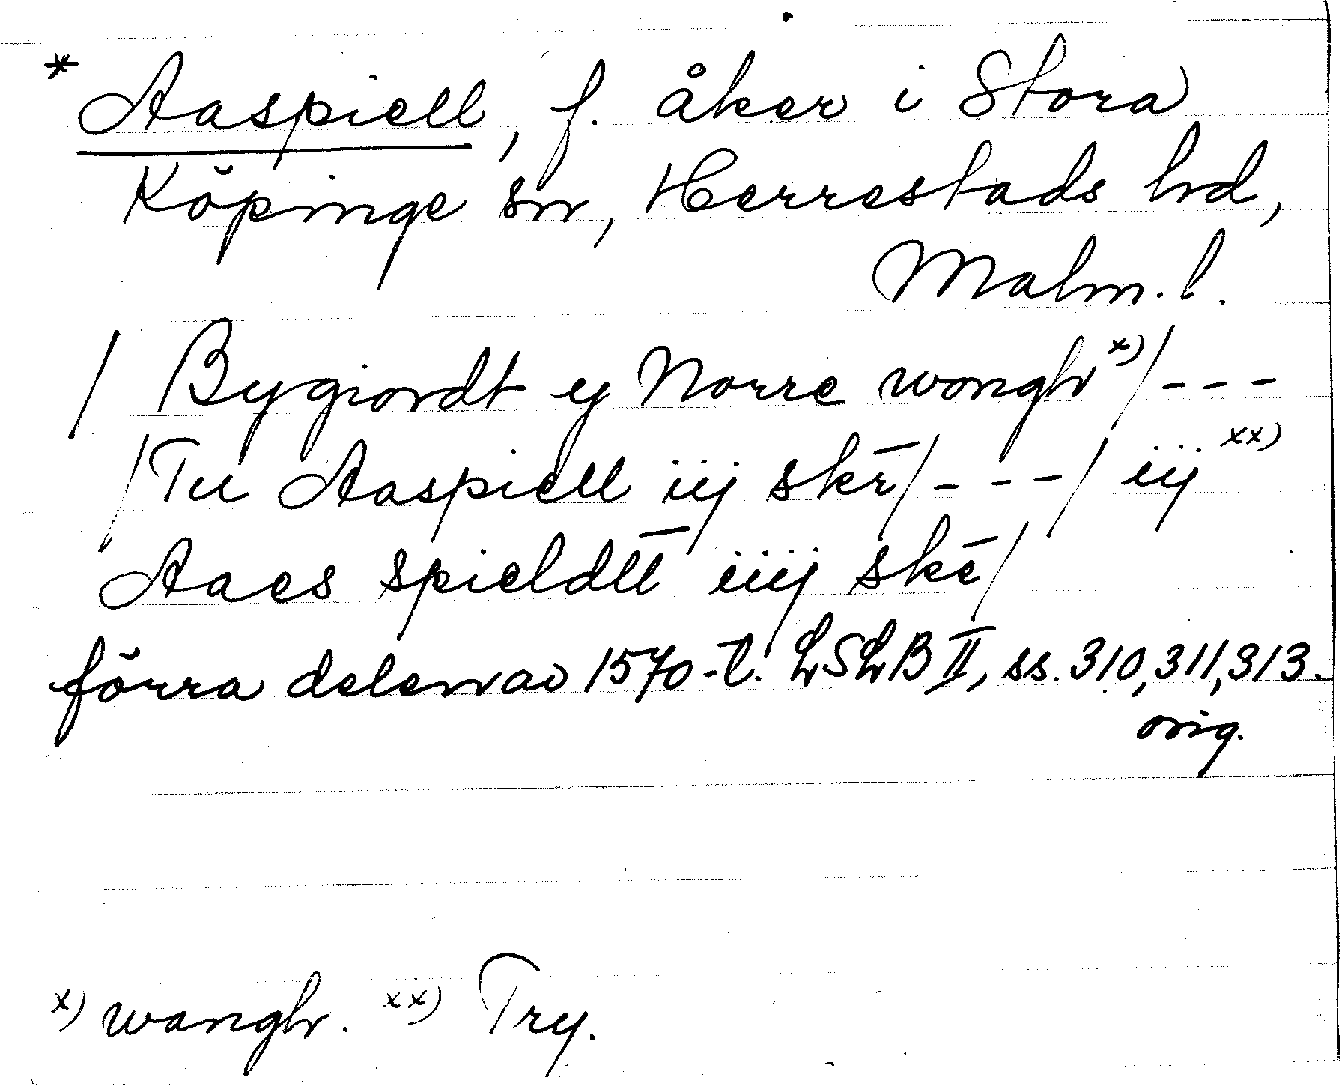 * Aaspiell, f. åker i Stora
Köpinge sn, Herrestads hd,
Malm. l.
/ Bygiordt ij Norre wongh x) / - - -
/ Tu Aaspiell iij skē / - - - / iij xx)
Aaes spieldīt iiij skē /
förra delen av 1570-t. LSLB II, ss. 310, 311, 313.
orig.
x) wangh. xx) Try.